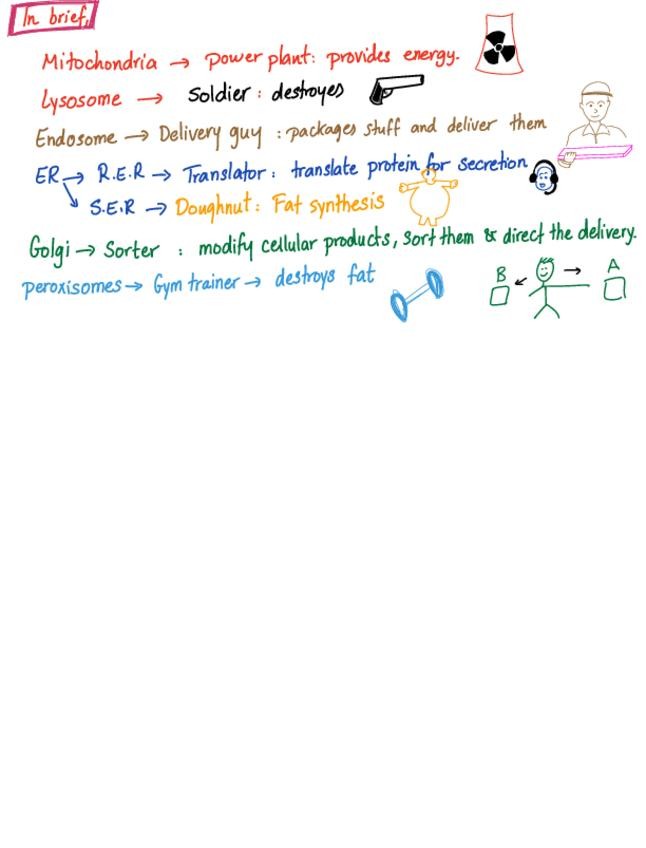 In brief,
Mitochondria → Power plant: provides energy.
Lysosome → Soldier : destroyes
Endosome → Delivery guy : packages stuff and deliver them
ER → R.E.R → Translator : translate protein for secretion
↘ S.E.R → Doughnut : Fat synthesis
Golgi → Sorter : modify cellular products, sort them & direct the delivery.
B ← → A
peroxisomes → Gym trainer → destroys fat